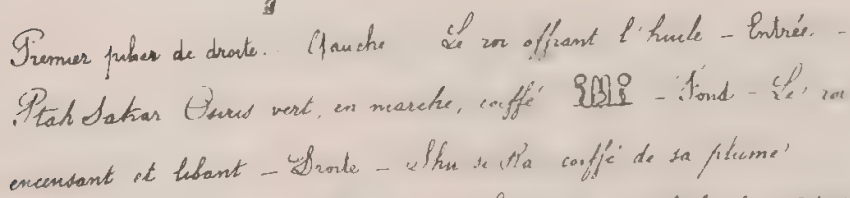 Premier pilier de droite. Gauche Le roi offrant l'huile – Entrée. –
Ptah Sakar Osiris vert, en marche, coiffé – Fond – Le roi
encensant et libant – Droite – Shu si Ra coiffé de sa plume